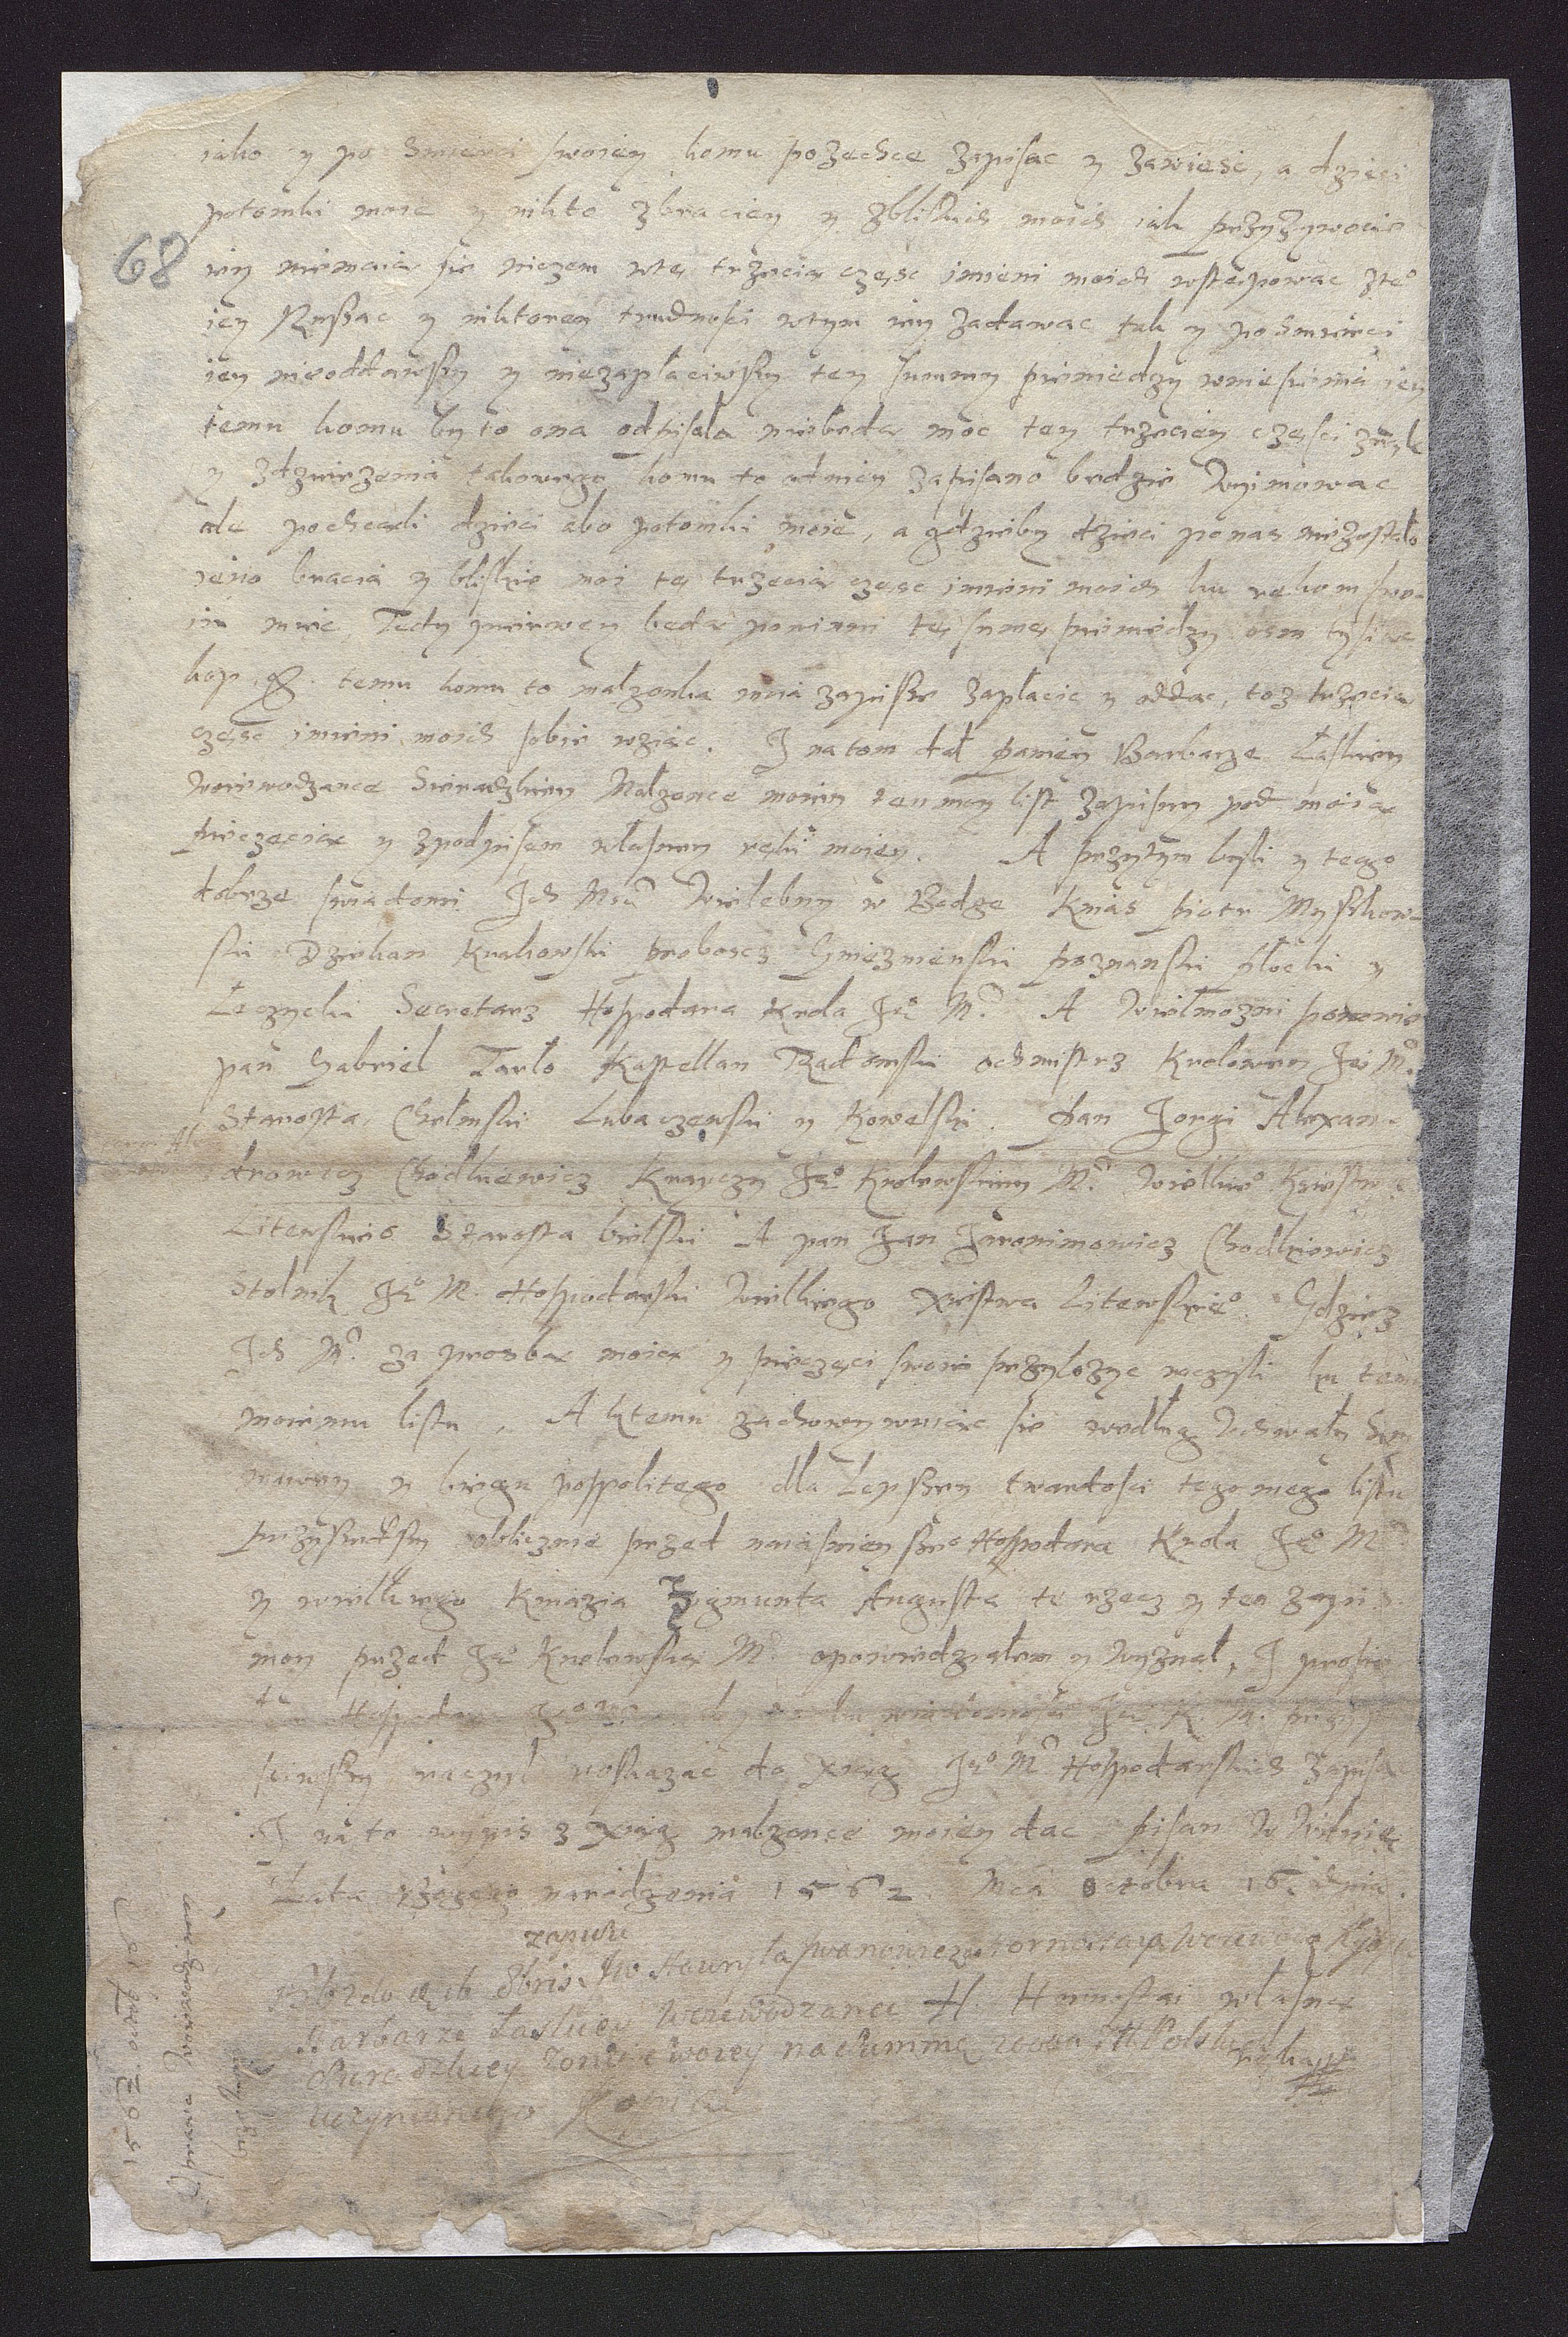 iako y po smierci swoiey komu pozechce zapisac y zawiesc, a dzieci
potomki moie y nikto zbraciey y zbliskich moich iak przyzywocie
68
iey niemaia sie niczem wte trzecia częsc imieni moich wstępowac zte°
iey Ruszac y niktorey trudnosci wtym iey zadawac tak y posmierci
iey nieoddawszy y niezaplaciwszy tey summy pieniedzy wniesienia iey
temu komu by to ona odpisała niebeda moc tey trzeciey części
y zdzierzenia takowego komu to odniey zapisano bedzie Wyimowac
ale pochcali dzieci abo potomki moie, a gdzieby dzieci po nas niezostało
ieno bracia y bliskie moi tę trzecia częsc imieni moich ku rękom swo-
im miec, Tedy pierwey beda powinni tę sumę pieniedzy osm tysiece
kop g. temu komu to małzonka moia zapisze zapłacic y oddac, toz trzecia
częsc imieni moich sobie wziąc. I na tom dał paniey Barbarze Łaskiey
Woiewodzance Sieradzkiey Małzonce moiey ten moy list zapisny pod moia
pieczęcia y zpodpisem własney ręki moiey. A przytym byli y tego
dobrze swiadomi Ich Msc Wielebny w Bodze Kniąs Piotr Myszkow-
ski Dziekan Krakowski proboscz Gnieznienski poznanski płocki y
Łęczycki Secretarz Hospodara Krola Je° M. A Wielmozni panowie
pan Gabriel Tarło Kastellan Radomski ochmistrz Krolowey Jei M.
Starosta Chełmski Lubaczewski y Kowelski. Pan Jorgi Alexan-
drowicz Chodkiewicz Krayczy Je° Krolewskiey M. Wielkie° Kxięstwa
Litewskie° Starosta bielski A pan Jan Jeronimowicz Chodkiewicz
Stolnik Je° M. Hospodarski Wielkiego Xięstwa Litewskie°. Gdziez
Ich M. za prozba moia y pieczęci swoie przylozyc raczyli ku temu
moiemu listu. A ktemu zachowywuiac sie wedlug Uchwały
y biegu pospolitego dla Lepszey twardosci tego mego listu
przyszedszy oblicznie przed naiasnieysze° Hospodara Krola Je° M
y wielkiego Kniazia Zigmunta Augusta te rzecz y ten zapis
moy przed Je° Krolewska M. opowiedziałem y Wyznał, I prosił
Hospodar
raczył roskazac do Xiąg Je° M Hospodarskich zapisac
I na to wypis z Xiąg malzonce moiey dac Pisan W Wilnie
Lata Bozego narodzenia 1562. Mca Octobra 16. dnia.
zapisu
Hawryła Iwanowicza Hornostaia Woiewody
Barbarze Łaskiey Woiewodzance H. Hornostai własna
Sieradzkiey zonie swoiey na summę 8000 Polskich ręka
uczynionego Kopia